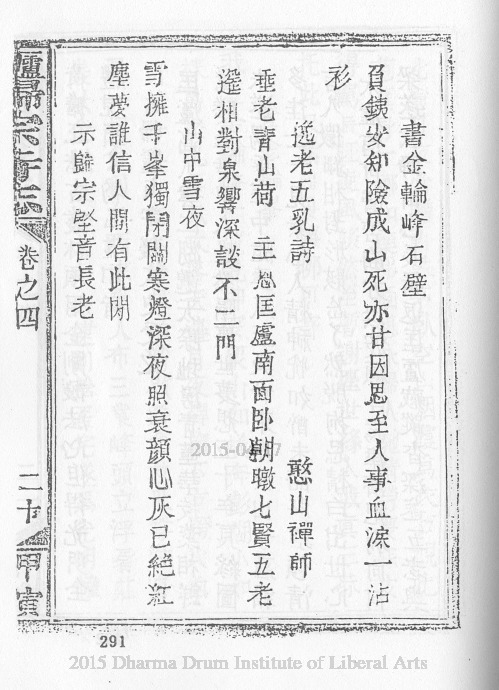 書金輪峰石壁
負鐵安知險成山死亦甘因思至人事血淚一沾
衫
逸老五乳詩　憨山禪師
垂老青山荷　主恩匡廬南面臥朝暾七賢五老
遙相對泉響深談不二門
山中雪夜
雪擁千峯獨閉關寒燈深夜照衰顏心灰已絕紅
塵夢誰信人間有此閒
示歸宗堅音長老
廬歸宗寺志
卷之四
二十
甲寅
2015-04-17
291
2015 Dharma Drum Institute of Liberal Arts